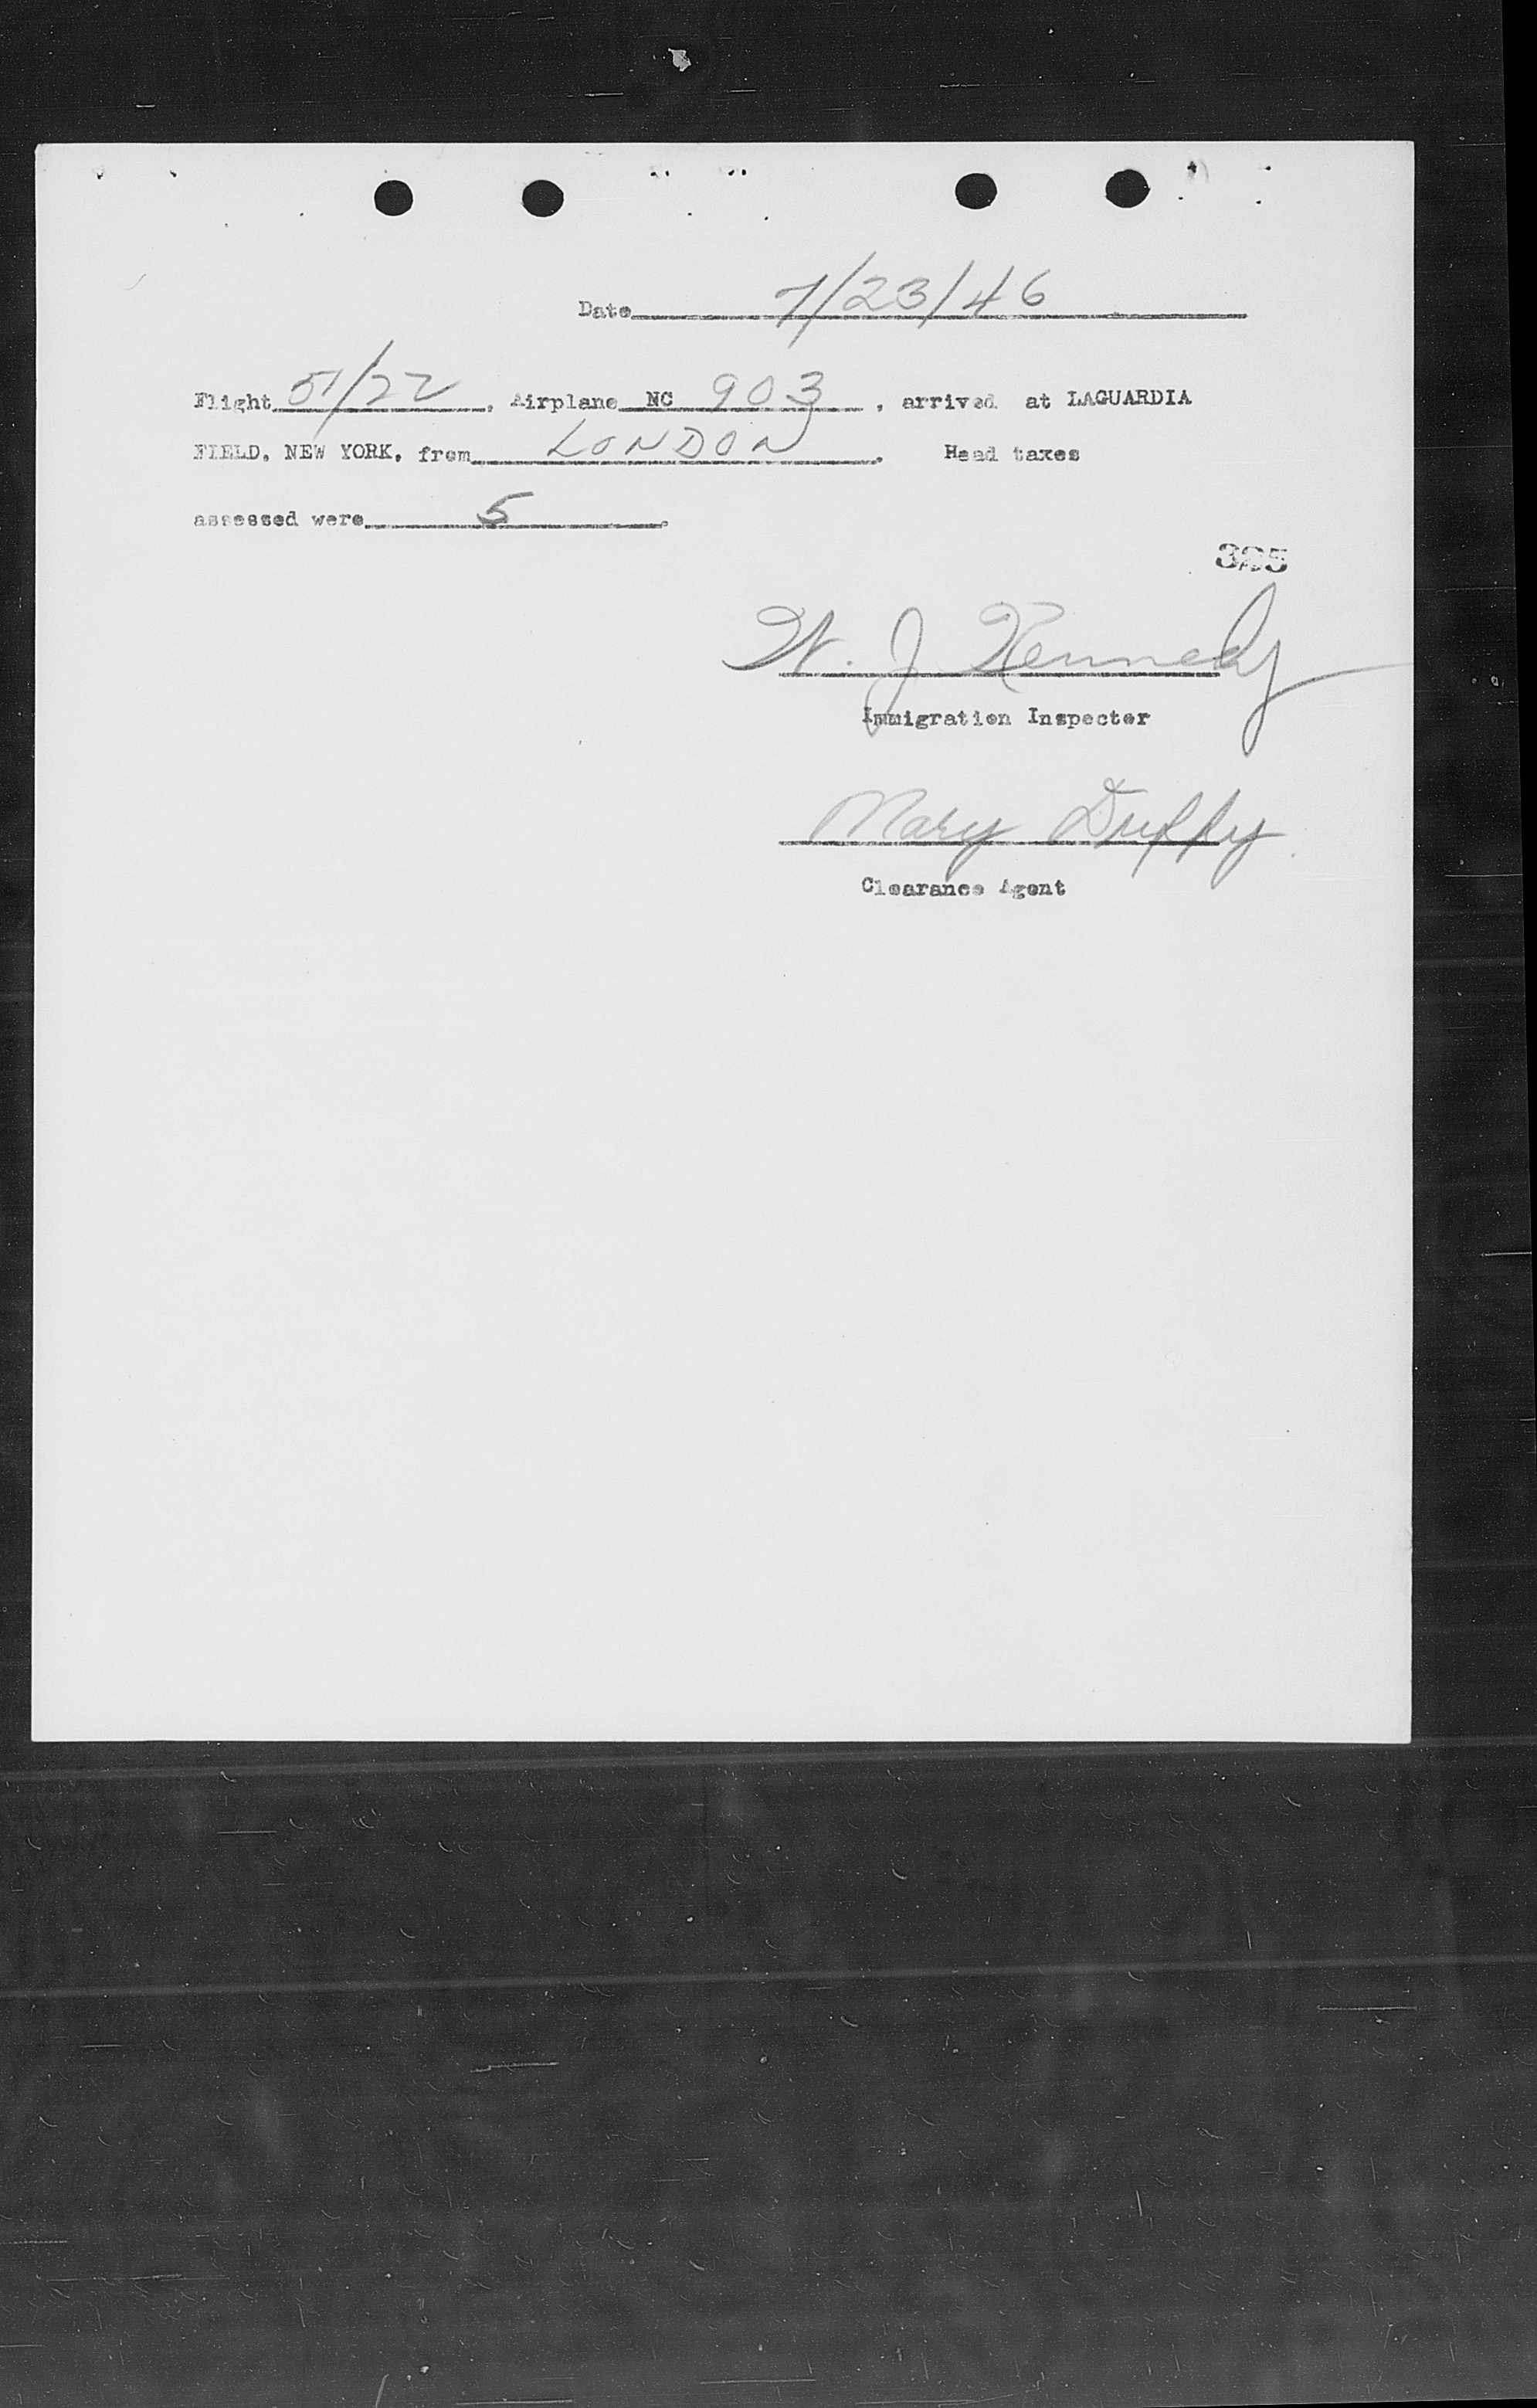 Date 7/23/46
Flight 51/22, Airplane NC 903, arrived at LAGUARDIA
FIELD, NEW YORK, from LONDON. Head taxes
assessed were 5.
325
W. J Kennedy
Immigration Inspector
Mary Duffy
Clearance Agent